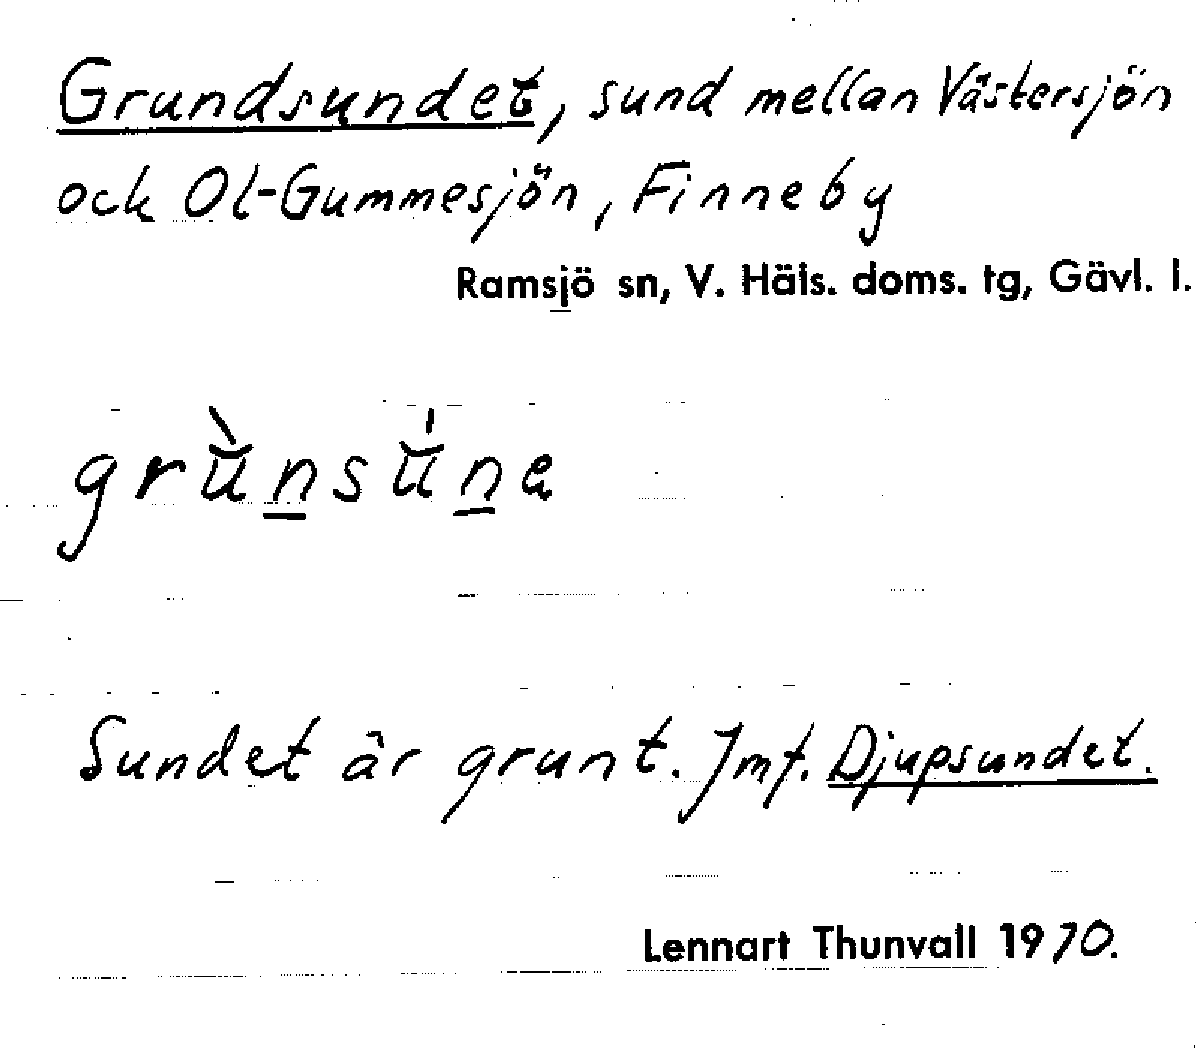 Grundsundet, sund mellan Västersjön
och Ol-Gummesjön, Finneby
Ramsjö sn, V. Häls. doms. tg, Gävl. l.
grŭ̀nsŭ́na
Sundet är grunt. Jmf. Djupsundet.
Lennart Thunvall 1970.